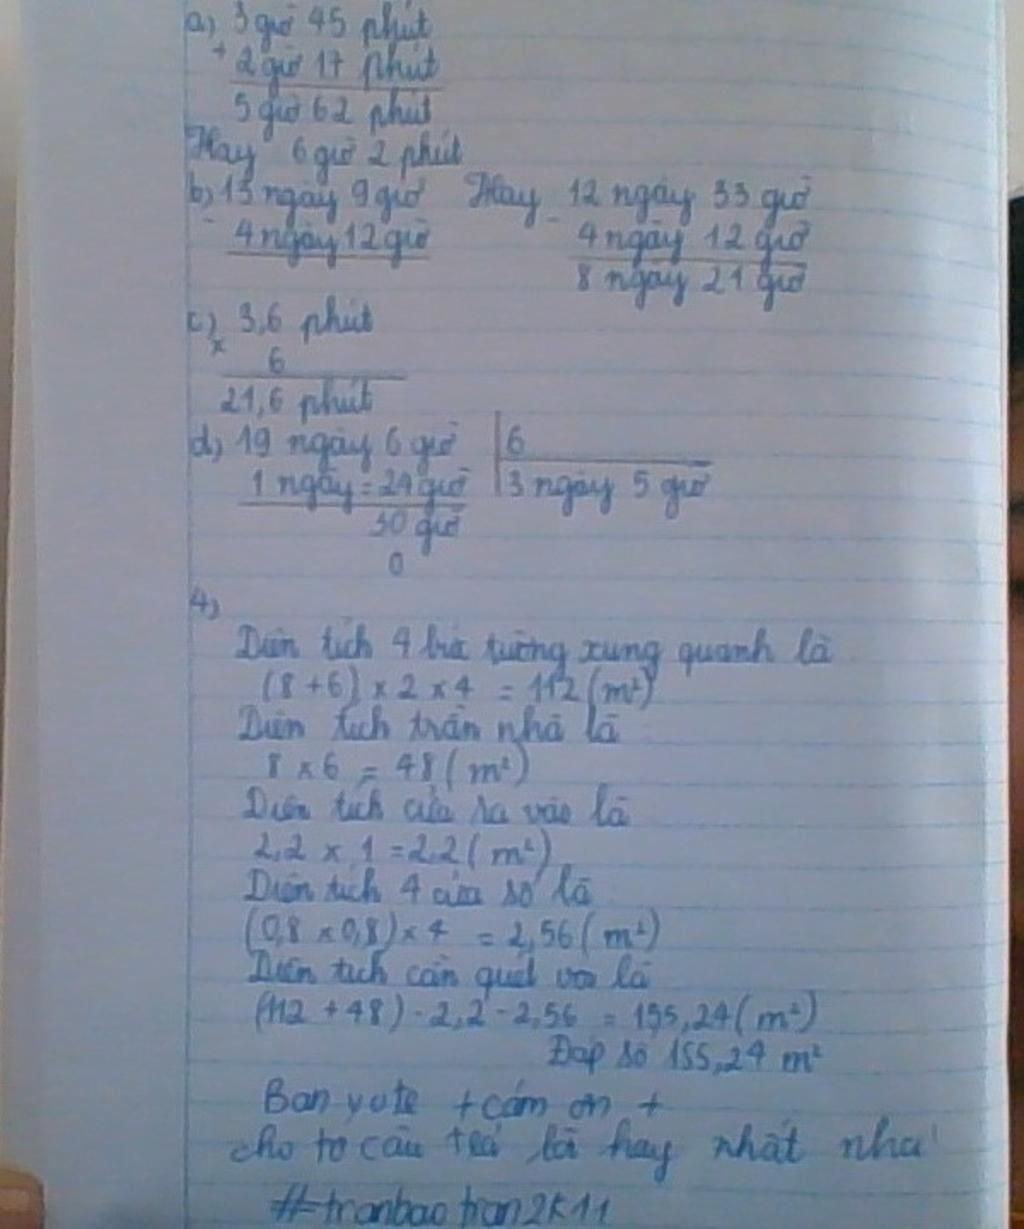 a) 3 giờ 45 phút
+ 2 giờ 17 phút
5 giờ 62 phút
Hay 6 giờ 2 phút
b) 13 ngày 9 giờ Hay 12 ngày 33 giờ
- 4 ngày 12 giờ - 4 ngày 12 giờ
8 ngày 21 giờ
c) 3,6 phút
x 6
21,6 phút
d) 19 ngày 6 giờ 6
1 ngày = 24 giờ 3 ngày 5 giờ
30 giờ
0
4)
Diện tích 4 bức tường xung quanh là
(8 + 6) x 2 x 4 = 112 (m²)
Diện tích trần nhà là
8 x 6 = 48 (m²)
Diện tích cửa ra vào là
2,2 x 1 = 2,2 (m²)
Diện tích 4 cửa sổ là
(0,8 x 0,8) x 4 = 2,56 (m²)
Diện tích cần quét vôi là
(112 + 48) - 2,2 - 2,56 = 155,24 (m²)
Đáp số 155,24 m²
Bạn vote + cám ơn +
cho tớ câu trả lời hay nhất nha
#tranbaotran2k11